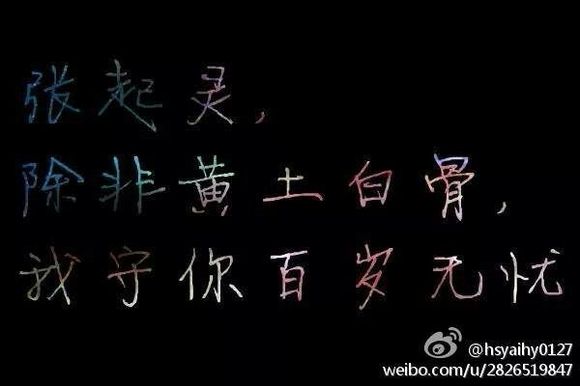 张起灵,
除非黄土白骨,
我守你百岁无忧
@hsyaihy0127
weibo.com/u/2826519847